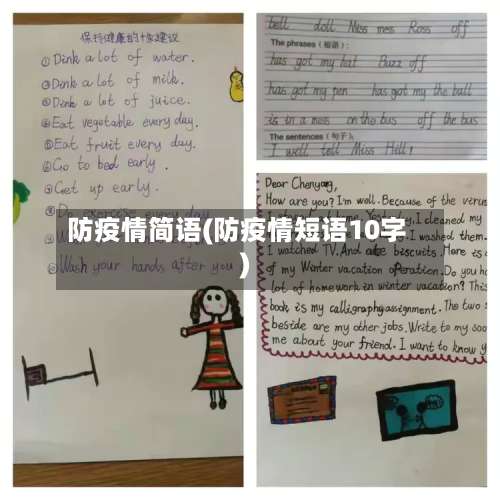 保持健康的十条建议
①Dink a lot of water.
②Dink a lot of milk.
③Dink a lot of juice.
④Eat vegetable every day.
⑤Eat fruit every day.
⑥Go to bed early.
⑦Get up early.
Wash your hands after you
bell doll Miss mess Ross off
The phrases (短语):
has got my hat Buzz off
has got my pen has got my the ball
is in a mess on the bus off the bus
The sentences (句子):
I well tell Miss Hill!
防疫情简语(防疫情短语10字
)
Dear Chenyang,
How are you? I'm well. Because of the verus
I cleaned my
I washed them.
I watched TV. And ate biscuits. Here is
of my Winter vacation operation. Do you ha
lot of homework in winter vacation? This
book is my calligraphy assignment. The two
beside are my other jobs. Write to my soo
me about your friend. I want to know y